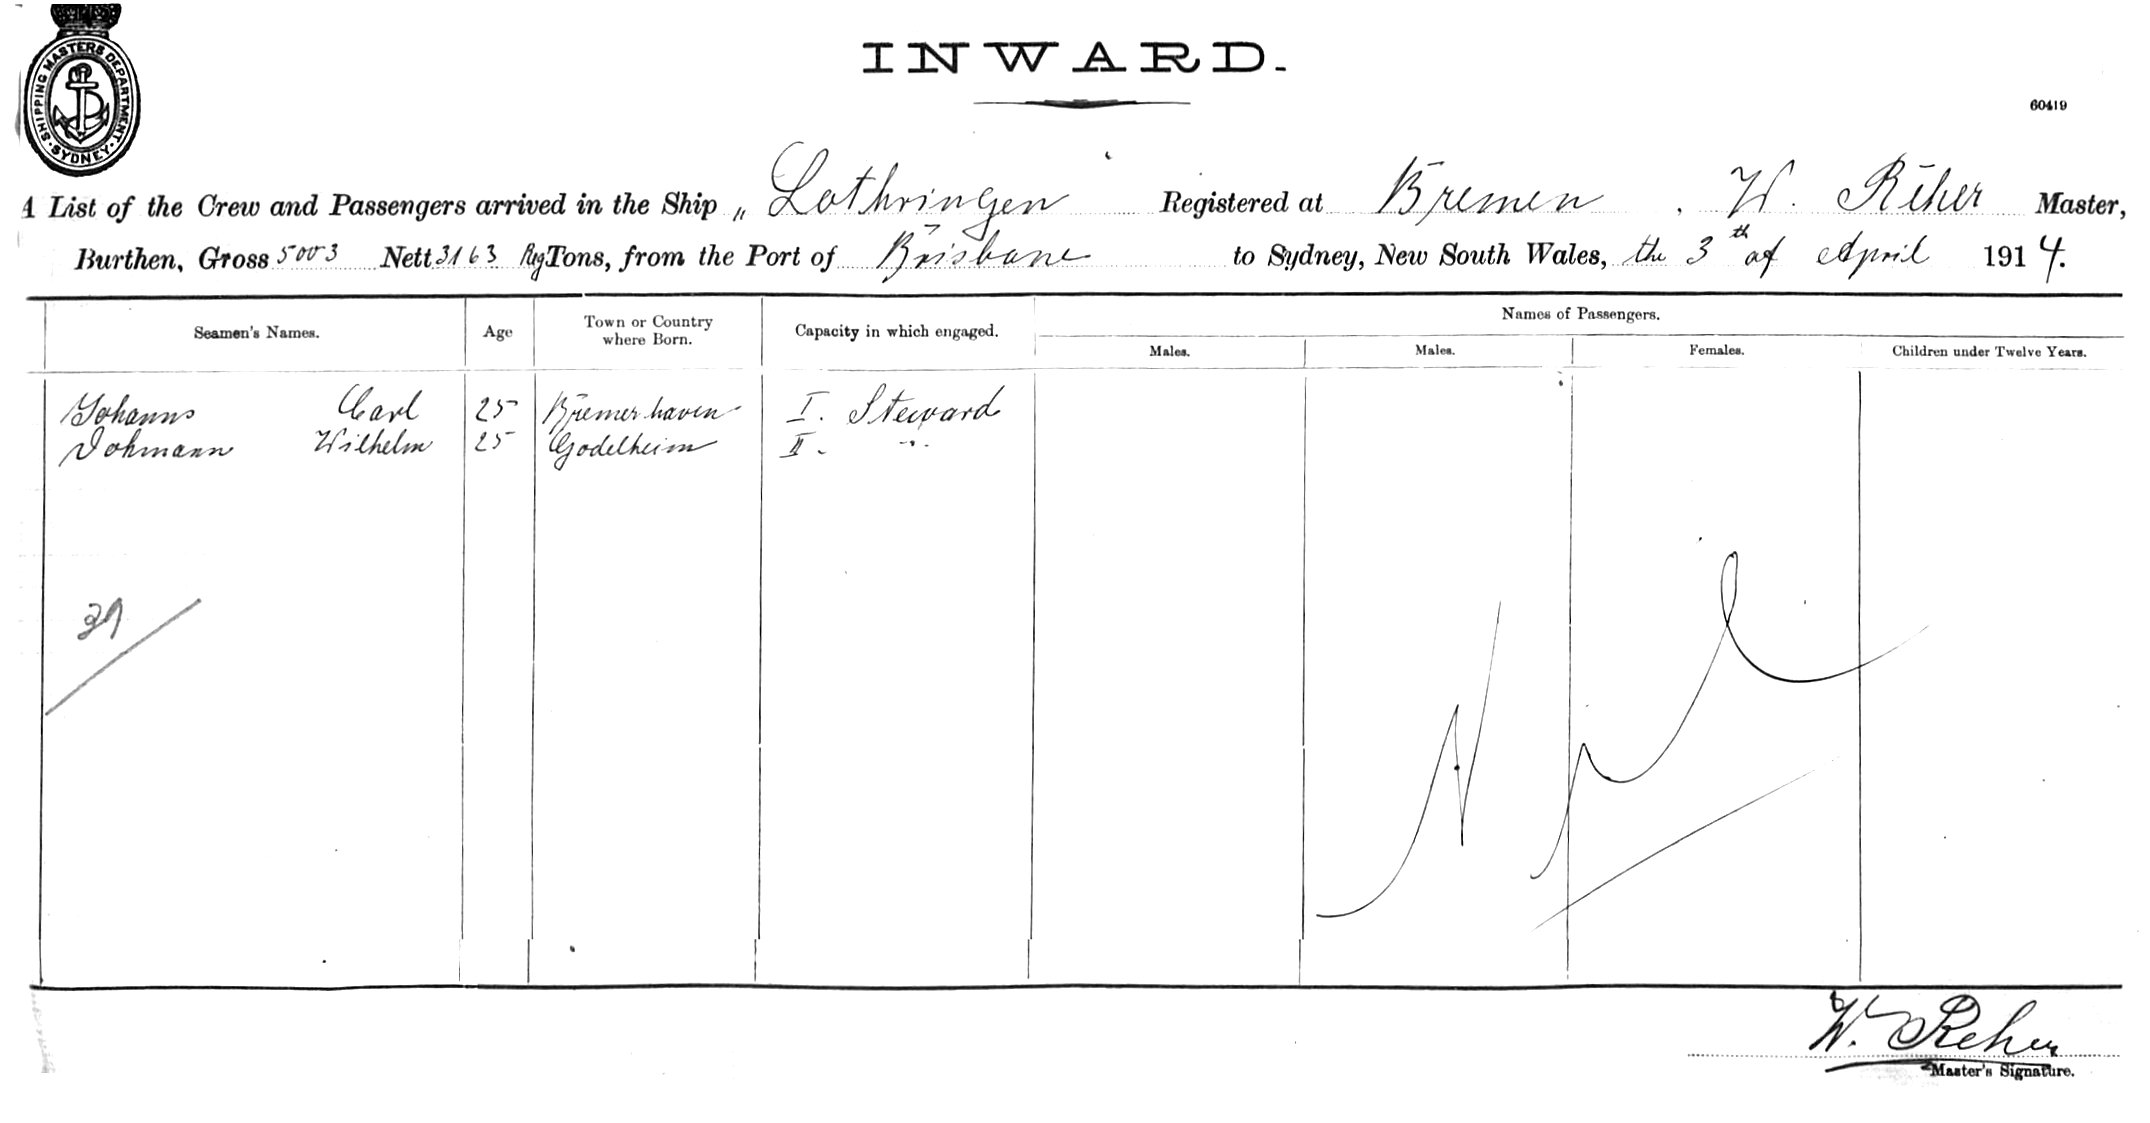 SHIPPING MASTERS DEPARTMENT. SYDNEY.
INWARD.
60419
A List of the Crew and Passengers arrived in the Ship „ Lothringen Registered at Bremen , W. Reher Master,
Burthen, Gross 5003 Nett 3163 Reg Tons, from the Port of Brisbane to Sydney, New South Wales, the 3th of April 1914.
Seamen's Names. Age Town or Country where Born. Capacity in which engaged. Names of Passengers.
Males. Males. Females. Children under Twelve Years.
Johanns Carl 25 Bremerhaven I. Steward
Dohmann Wilhelm 25 Godelheim II. "
39
Nil
W. Reher
Master's Signature.